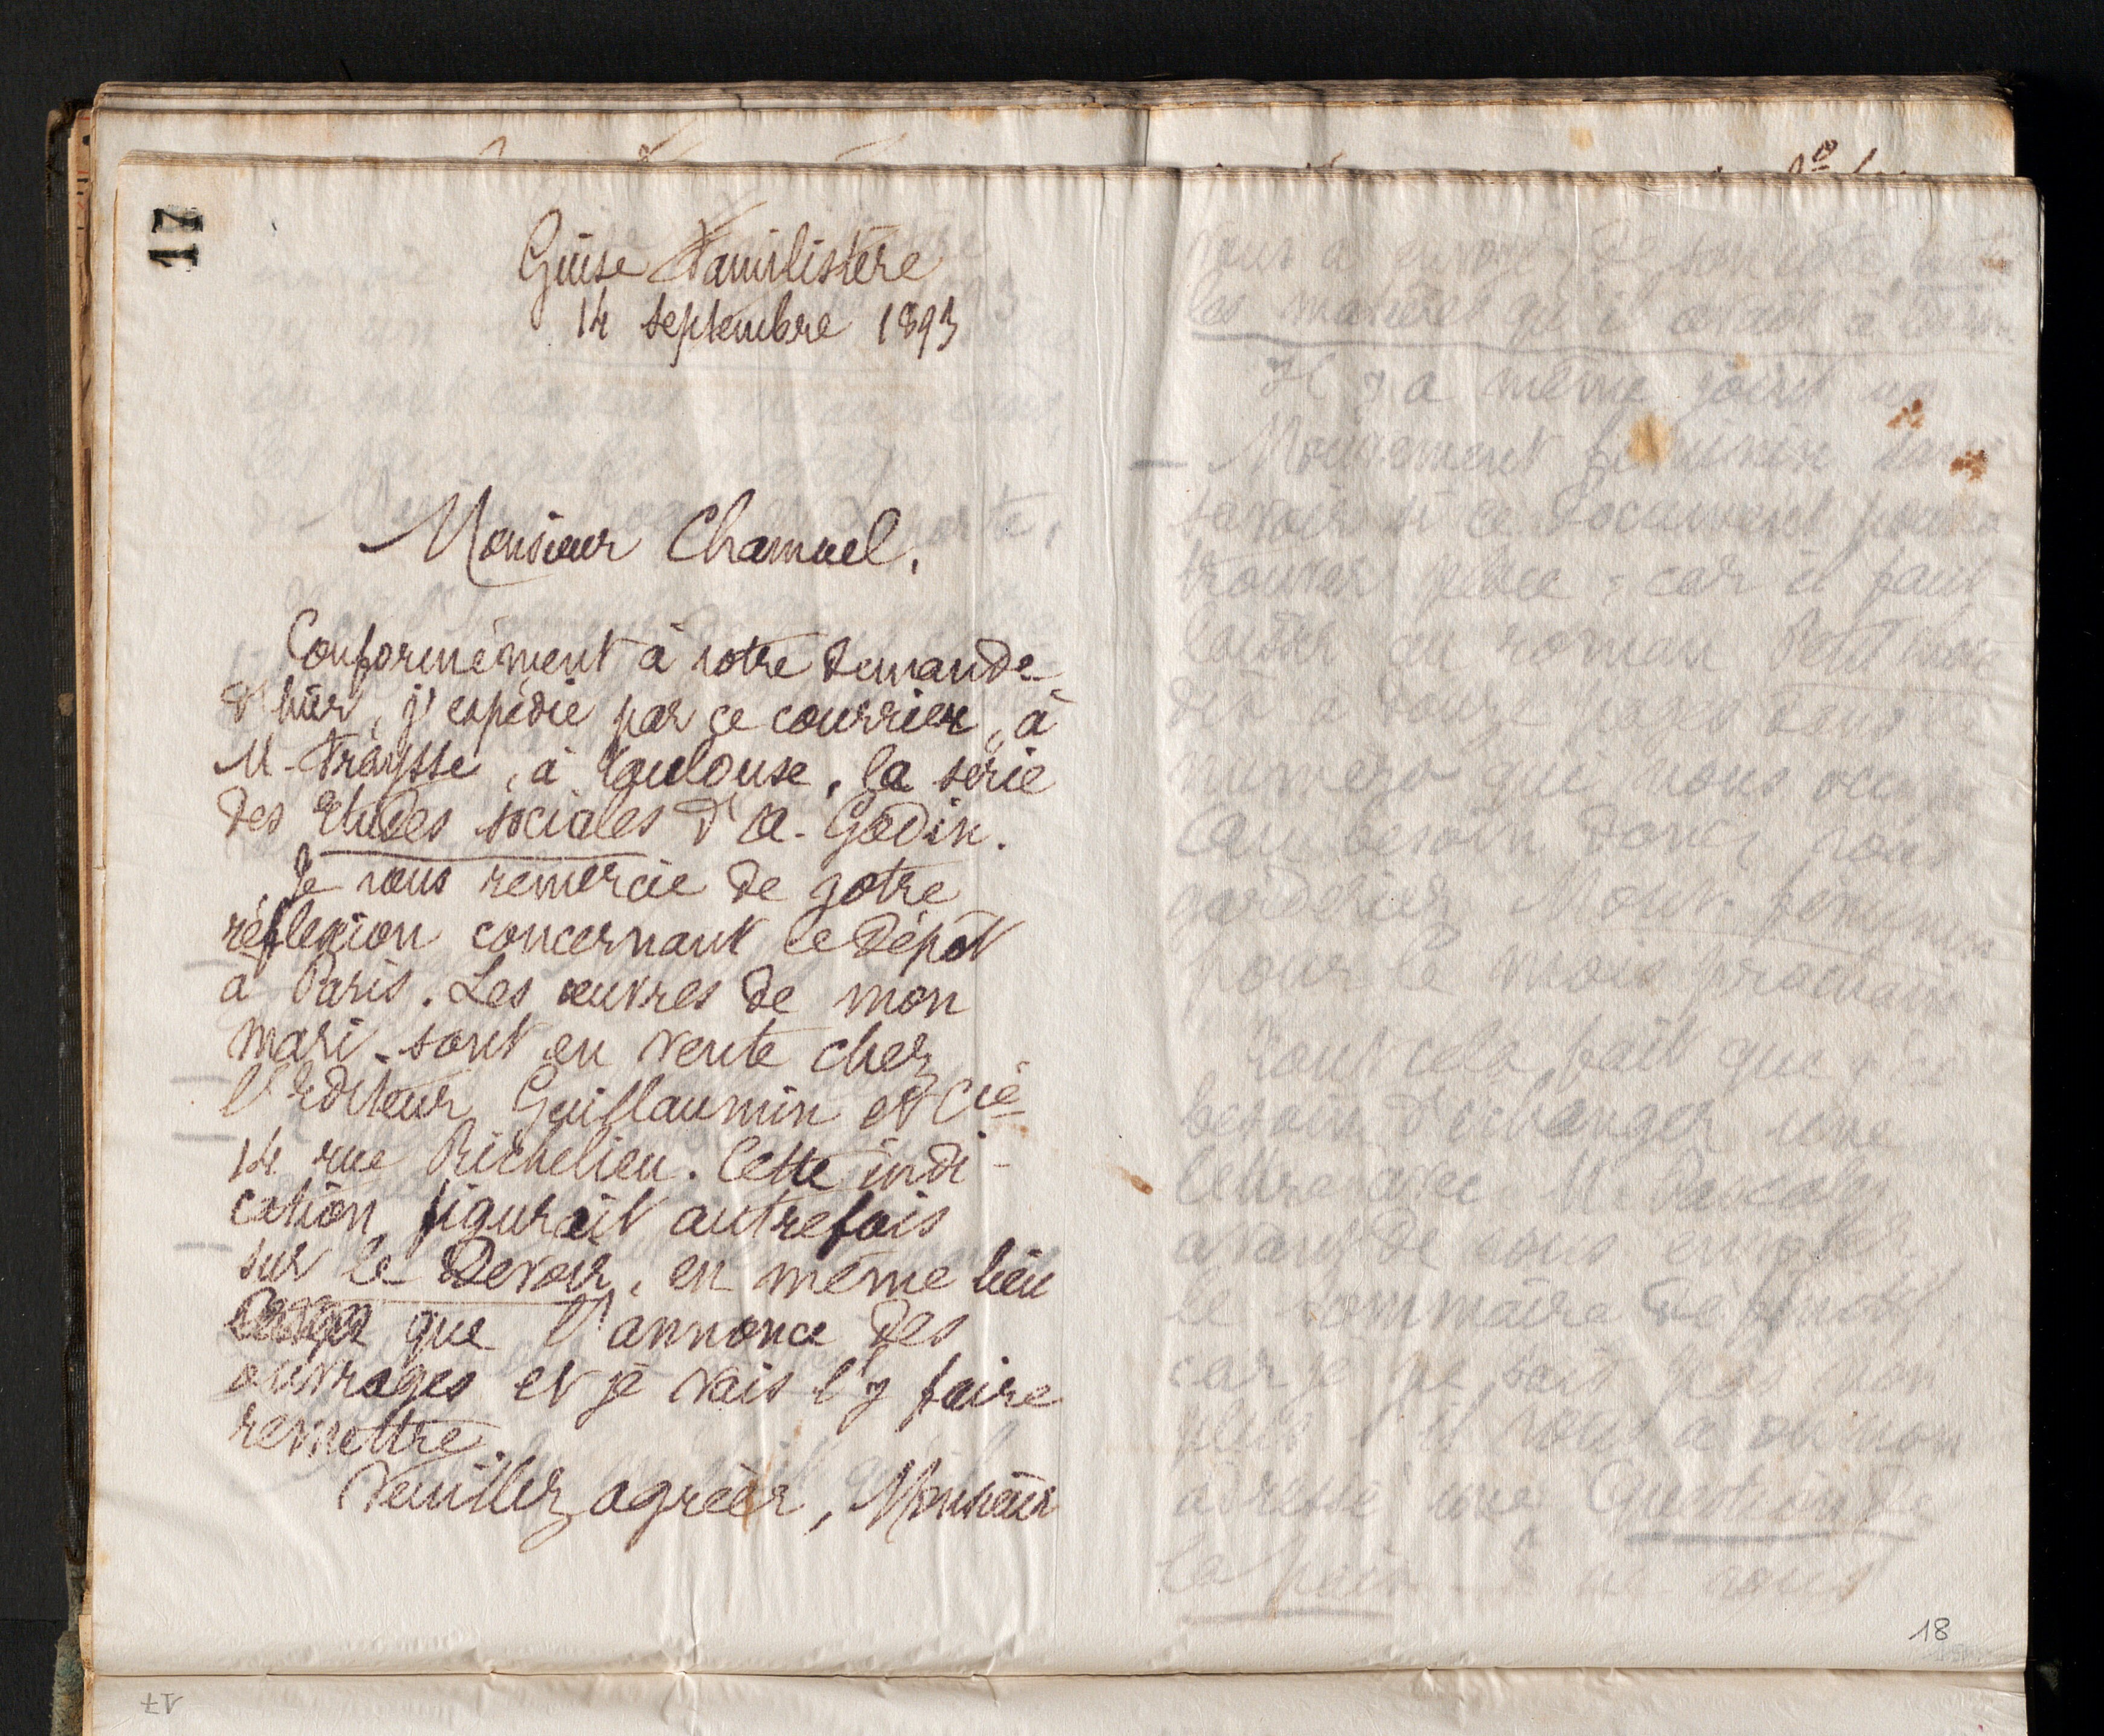 17
Guise Familistère
14 septembre 1893
Monsieur Chamuel.
Conformément à votre demande
d'hier, j'expédie par ce courrier, à
M. Fraysse, à Toulouse, la série
des Etudes sociales d'A. Godin.
Je vous remercie de votre
réflexion concernant le dépôt
à Paris. Les œuvres de mon
mari sont en vente chez
l'Editeur Guillaumin et Cie
14 rue Richelieu. Cette indi-
cation figurait autrefois
sur le Devoir, en même lieu
que l'annonce des
ouvrages et je vais l'y faire
remettre.
Veuillez agréer, Monsieur
17
vous a envoyé de son côté toutes
les matières qu'il avait à
Il y a même joint un
Mouvement féminin sans
savoir si ce document pourra
trouver place, car il faut
au roman Petit
pages dans le
numéro qui nous occupe
Au besoin donc, vous
garderiez Mouv. féminin
pour le mois prochain
Tout cela fait que j'ai
besoin d'échanger une
lettre avec M. Pascaly
avant de vous envoyer
le sommaire définitif,
car je ne sais pas non
plus s'il vous a ou non
adressé une Question de
la paix
18